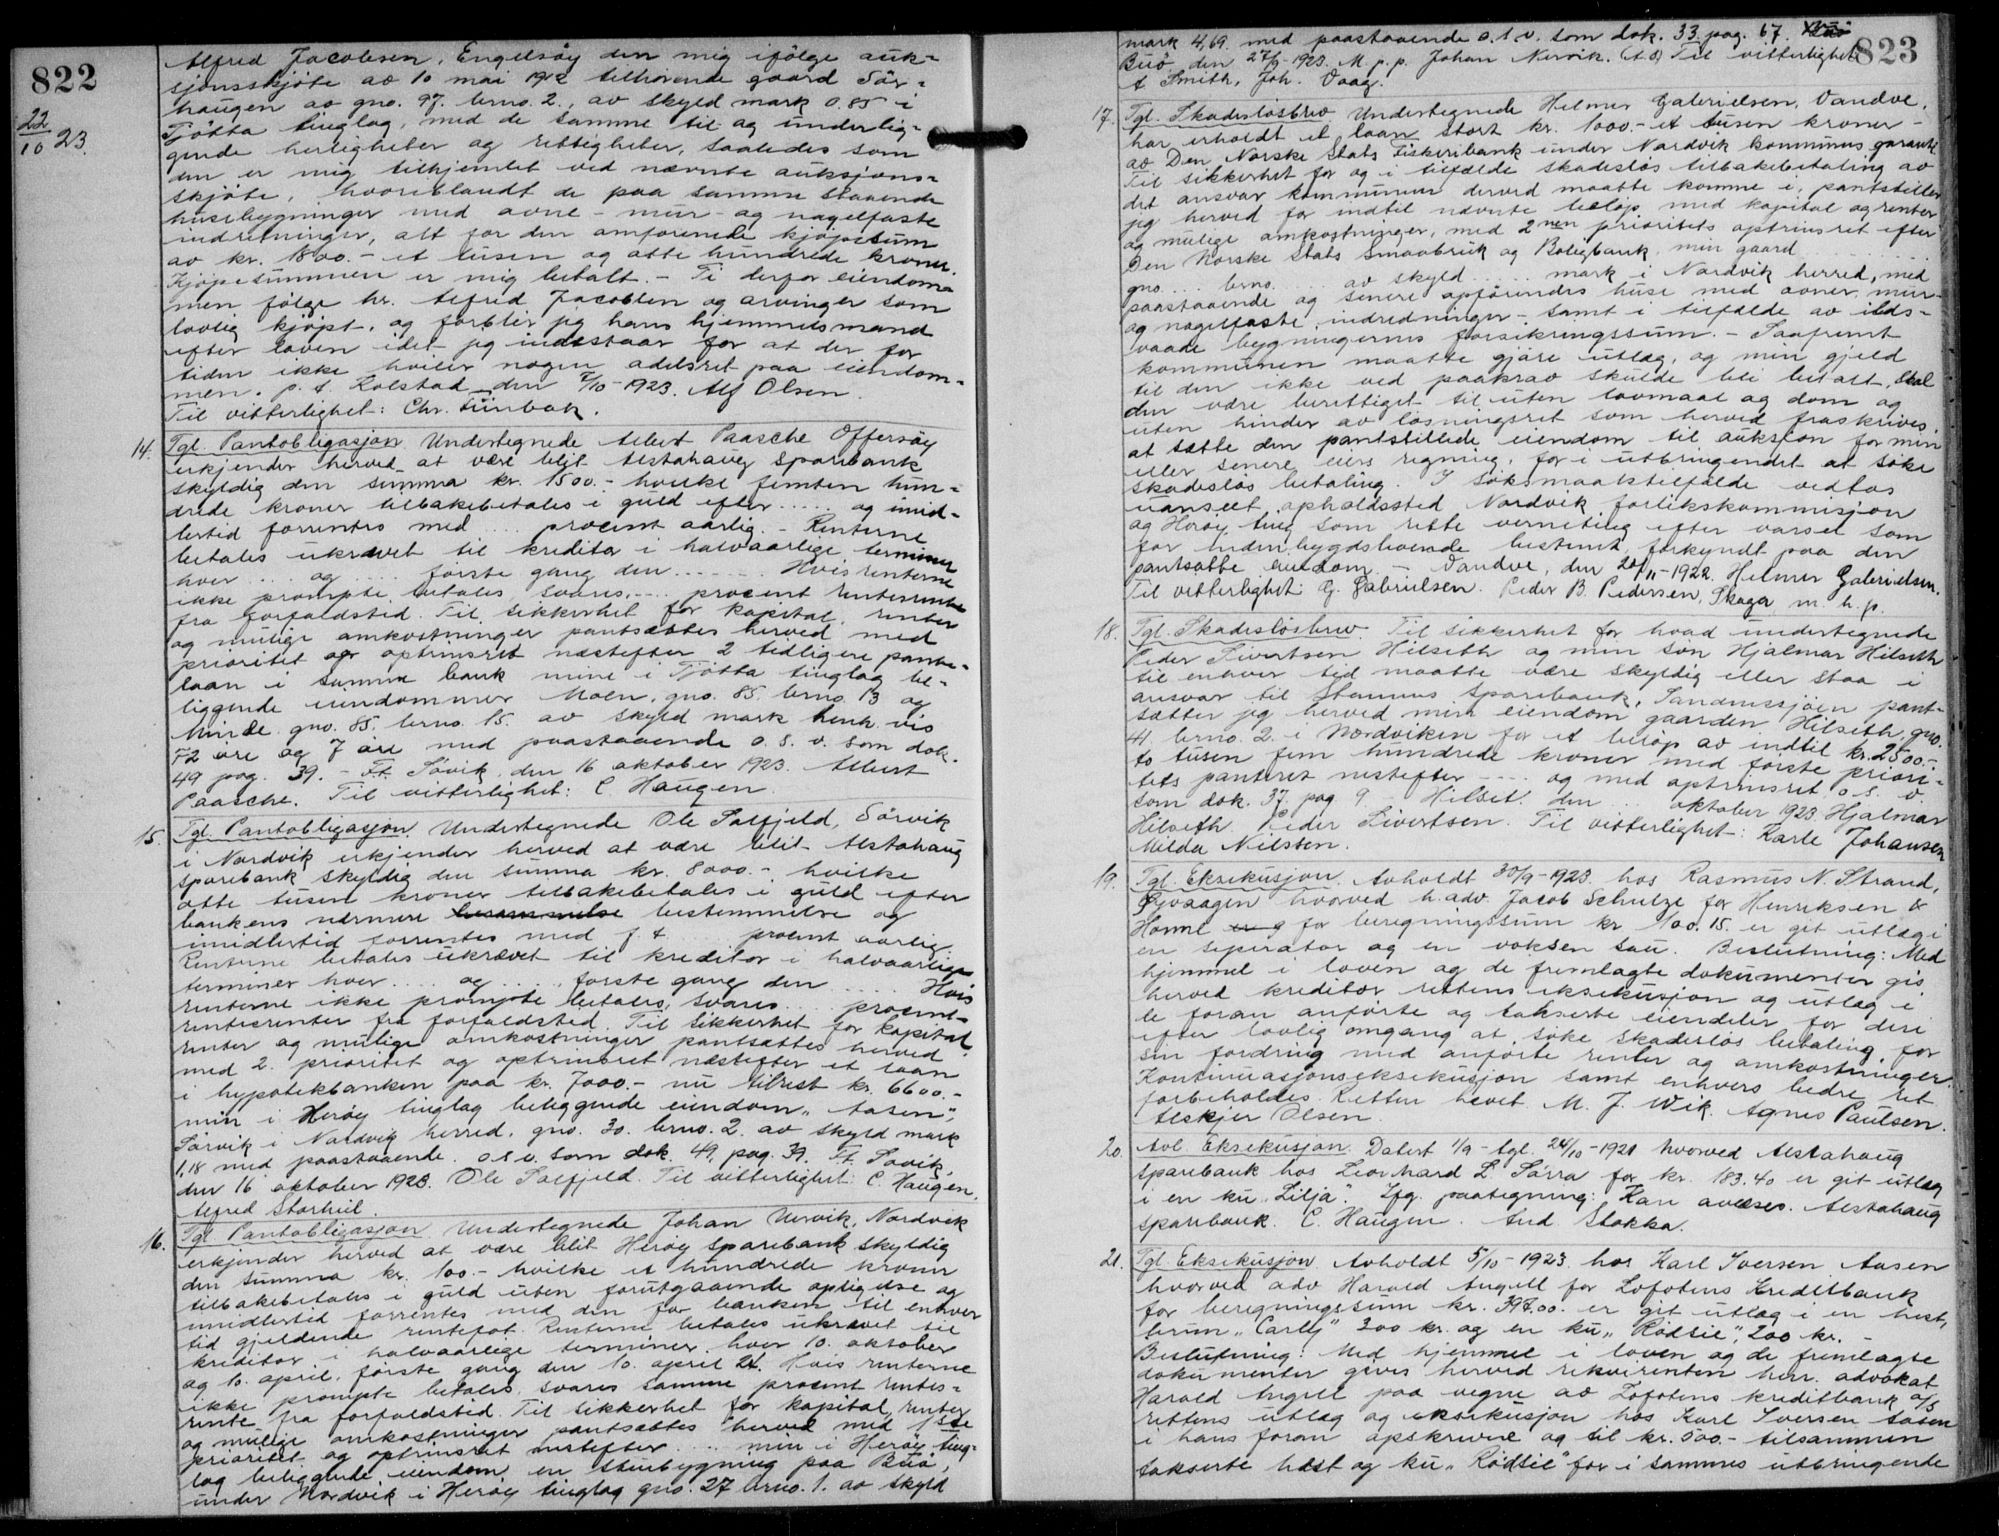 822
22/10 23.
Alfred Jacobsen, Engelsöy den mig ifölge auk=
sjonsskjöte av 10 mai 1912 tilhörende gaard Sör=
haugen av gno. 97. brno. 2., av skyld mark 0.85 i
Tjötta tinglag, med de samme til- og underlig=
gende herligheter og rettigheter, saaledes som
den er mig tilhjemlet ved nævnte auksjons=
skjöte, hvoriblandt de paa samme staaende
husebygninger med ovne- mur- og nagelfaste
indretninger, alt for den omforenede kjöpesum
av kr. 1800.- et tusen og otte hundrede kroner.
Kjöpesummen er mig betalt. - Ti derfor eiendom=
men fölge hr. Alfred Jacobsen og arvinger som
lovlig kjöpt, og forblir jeg hans hjemmelsmand
efter loven idet jeg indestaar for at der for
tiden ikke hviler nogen adelsret paa eiendom=
men. p. t. Rolstad den 7/10-1923. Alf Olsen.
Til vitterlighet: Chr. Finbak.
14. Tgl. Pantobligasjon Undertegnede Albert Paasche Offersöy
erkjender herved at være blit Alstahaug Sparebank
skyldig den summa kr. 1500.- hvilke femten hun=
drede kroner tilbakebetales i guld efter ..... og imid=
lertid forrentes med ... procent aarlig. - Renterne
betales ukrævet til kreditor i halvaarlige terminer
hver .... og .... förste gang den ....... Hvis renterne
ikke prompte betales svares .... procent rentesrenter
fra forfaldstid. Til sikkerhet for kapital, renter
og mulige omkostninger pantsættes herved med
prioritet og optrinsret næstefter 2 tidligere pante=
laan i samme bank mine i Tjötta tinglag be=
liggende eiendommer Moen, gno. 85 brno 13 og
Minde gno. 85. brno. 15. av skyld mark henh. vis
72 öre og 7 öre med paastaaende o. s. v. som dok.
49 pag. 39. - Ft. Sövik, den 16 oktober 1923. Albert
Paasche. Til vitterlighet: C Haugen.
15. Tgl. Pantobligasjon. Undertegnede Ole Salfjeld, Sörvik
i Nordvik erkjender herved at være blit Alstahaug
sparebank skyldig den summa kr. 8000.- hvilke
otte tusen kroner tilbakebetales i guld efter
bankens nærmere bestemmelse og
imidlertid forrentes med f. t. .... procent aarlig.
Renterne betales ukrævet til kreditor i halvaarlige
terminer hver .... og .... förste gang den ..... Hvis
renterne ikke prompte betales, svares ... procent
rentesrenter fra forfaldstid. Til sikkerhet for kapital,
renter og mulige omkostninger pantsættes herved
med 2. prioritet og optrinsret næstefter et laan
i hypotekbanken paa kr. 7000.- nu tilrest kr. 6600.-
min i Heröy tinglag beliggende eiendom „Aasen",
Sörvik i Nordvig herred. gno. 30. brno. 2. av skyld mark
1,18 med paastaaende o.s.v. som dok. 49, pag. 39. Ft. Sövik,
den 16 oktober 1923. Ole Salfjeld. Til vitterlighet: C. Haugen,
Alfred Storheil.
16. Tgl. Pantobligasjon Undertegnede Johan Nervik, Nordvik
erkjender herved at være blit Heröy sparebank skyldig
den summa kr. 100.- hvilke et hundrede kroner
tilbakebetales i guld uten forutgaaende opsigelse og
imidlertid forrentes med den for banken til enhver
tid gjeldende rentefot. Renterne betales ukrævet til
kreditor i halvaarlige terminer, hver 10. oktober
og 10. april, förste gang den 10. april 24. Hvis renterne
ikke prompte betales svares samme procent rentes=
rente fra forfaldstid. Til sikkerhet for kapital, renter
og mulige omkostninger pantsættes herved med 1ste
prioritet og optrinsret nestefter .... min i Heröy ting=
lag beliggende eiendom en stuebygning paa Buö,
under Nordvik i Heröy tinglag gno. 27 brno. 1. av skyld
823
mark 4,69. med paastaaende o.s.v. som dok. 33 pag. 67.
Buö den 27/9-1923. M p. p. Johan Nervik. (LS) Til vitterlighet:
A Smith, Joh. Vaag.
17. Tgl. Skadeslösbrev Undertegnede Helmer Gabrielsen, Vandve,
har erholdt et laan stort kr. 1000.- et tusen kroner -
av Den Norske Stats Fiskeribank under Nordvik kommunes garanti.
Til sikkerhet for og i tilfælde skadeslös tilbakebetaling av
det ansvar kommunen derved maatte komme i, pantstiller
jeg herved for indtil nævnte belöp med kapital og renter
og mulige omkostninger, med 2nen prioritets optrinsret efter
Den Norske Stats Smaabruk og Boligbank min gaard ........
gno ... brno. ... av skyld ..... mark i Nordvik herred, med
paastaaende og senere opförendes huse med ovner, mur-
og nagelfaste indredninger - samt i tilfælde av ilds-
vaade bygningernes forsikringssum. - Saafremt
kommunen maatte gjöre utlæg, og min gjeld
til den ikke ved paakrav skulde bli betalt, skal
den være berettiget til uten lovmaal og dom og
uten hinder av lösningsret som herved fraskrives,
at sætte den pantstillede eiendom til auksjon for min
eller senere eiers regning, for i utbringendet at söke
skadeslös betaling. I söksmaalstilfælde vedtas
uanseet opholdssted Nordvik forlikskommisjon
og Heröy ting som rette verneting efter varsel som
for indenbygdsboende bestemt, forkyndt paa den
pantsatte eiendom. - Vandve, den 20/11-1922. Helmer Gabrielsen.
Til vitterlighet: G. Gabrielsen. Peder B. Pedersen, Skaga m. h. p.
18. Tgl. Skadeslösbrev. Til sikkerhet for hvad undertegnede
Peder Sivertsen Hilseth og min sön Hjalmar Hilseth
til enhver tid maatte være skyldig eller staa i
ansvar til Stamnes Sparebank, Sandnessjöen pant=
sætter jeg herved min eiendom gaarden Hilseth, gno.
41. brno. 2. i Nordviken for et belöp av indtil kr. 2500.-
to tusen fem hundrede kroner med förste priori=
tets panteret nestefter .... og med optrinsret o. s. v.
som dok. 37. pag 9. - Hilset den ... oktober 1923. Hjalmar
Hilseth Peder Sivertsen. Til vitterlighet: Karle Johansen
Milda Nilssen.
19. Tgl. Eksekusjon. Avholdt 30/9-1923. hos Rasmus N. Strand,
hvorved h. adv. Jacob Schulze for Henriksen &
for beregningssum kr. 100.15. er git utlæg i
en seperator og en voksen sau. Beslutning: Med
hjemmel i loven og de fremlagte dokumenter gis
herved kreditor rettens eksekusjon og utlæg i
de foran anförte og takserte eiendeler for deri
efter lovlig omgang at söke skadeslös betaling for
sin fordring med anförte renter og omkostninger.
Kontinuasjonseksekusjon samt enhvers bedre ret
forbeholdes. Retten hevet. M. J. Wik. Agnes Paulsen.
Olsen.
20. Avl. Eksekusjon. Datert 1/9- tgl. 24/10-1921 hvorved Alstahaug
sparebank hos Leonhard L. Sörra for kr. 183.40 er git utlæg
i en ku „Lilja". Ifg. paategning: Kan avlæses. Alstahaug
sparebank. C. Haugen. And. Stokka.
21. Tgl. Eksekusjon. Avholdt 5/10-1923. hos Karl Iversen Aasen
hvorved adv. Harald Angell for Lofotens Kreditbank
for beregningssum kr. 398.00. er git utlæg i en hest,
brun „Carly" 300 kr. og en ku „Rödsil", 200 kr. -
Beslutning: Med hjemmel i loven og de fremlagte
dokumenter gives herved rekvirenten herr. advokat
Harald Angell paa vegne av Lofotens kreditbank a/s
rettens utlæg og eksekusjon hos Karl Iversen Aasen
i hans foran opskrevne og til kr. 500.- tilsammen
takserte hest og ku „Rödsil" for i sammes utbringende